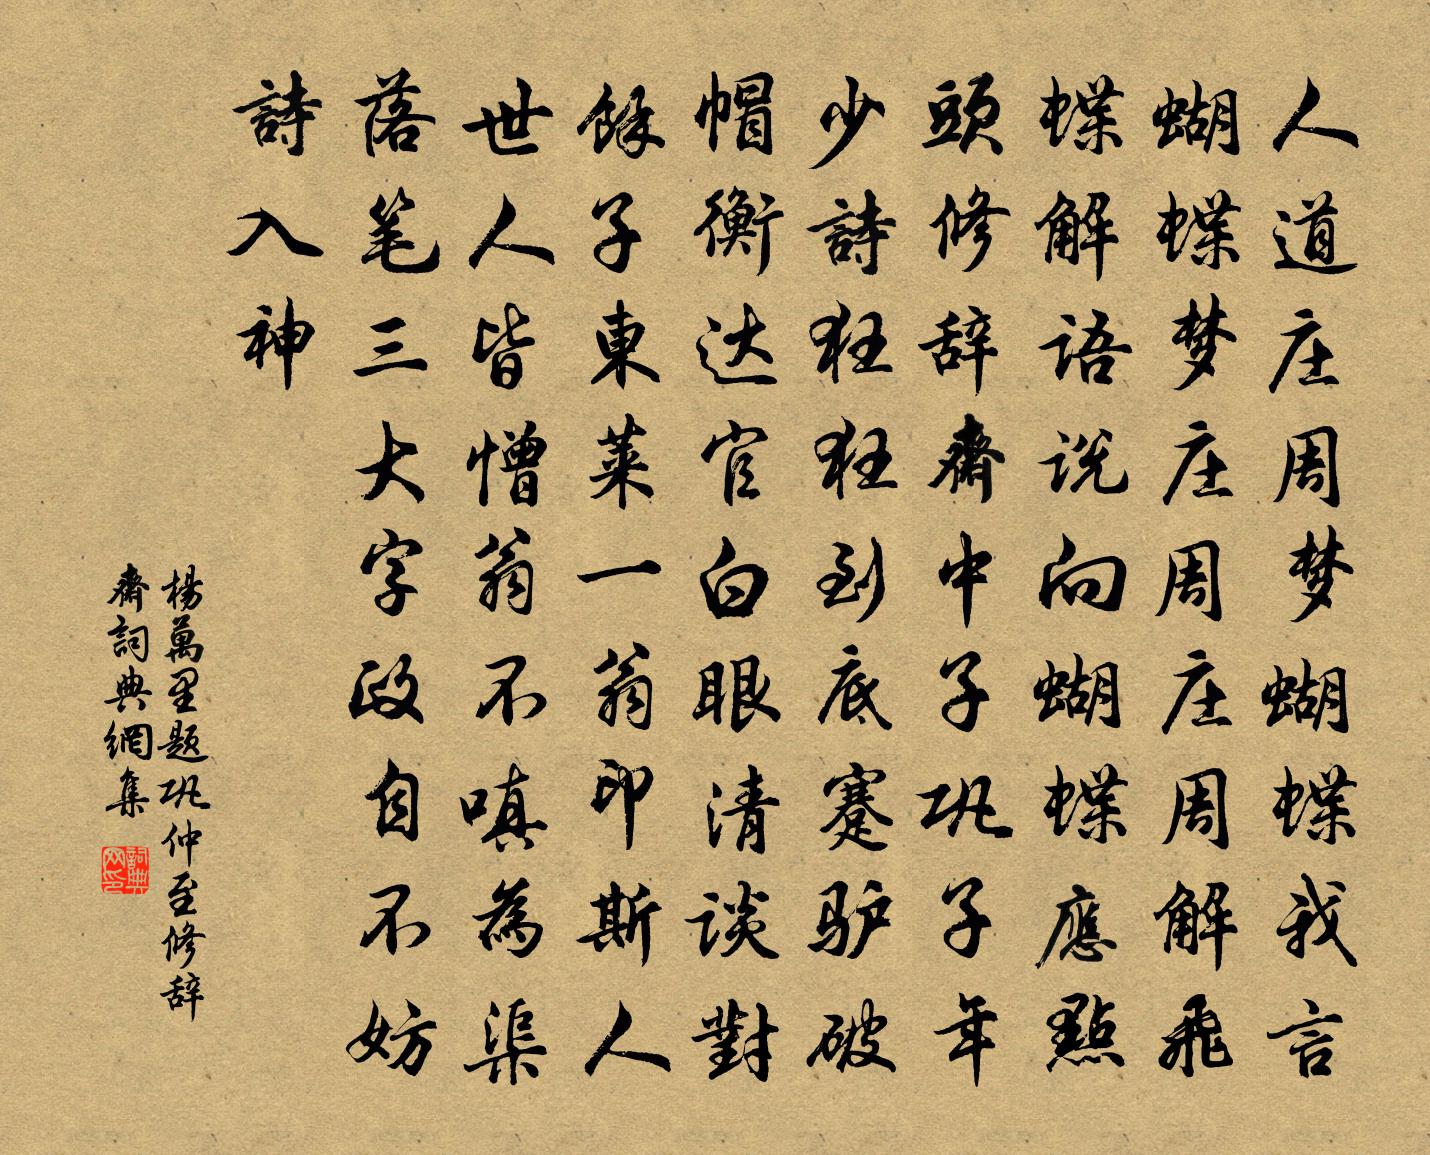 人道庄周梦蝴蝶我言
蝴蝶梦庄周庄周解飛
蝶解語说向蝴蝶應點
頭修辞齋中子巩子年
少詩狂狂到底蹇驴破
帽衡达官白眼清谈對
餘子東萊一翁印斯人
世人皆憎翁不嗔為渠
落笔三大字政自不妨
詩入神
楊萬里题巩仲至修辞
齋詞典網集
詞典
网印